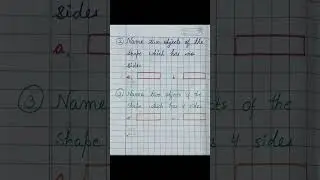 sides
a.
② Name two objects of the
shape which has no
sides.
a.
③ Name two objects of the
shape which has 4 sides
a.
③ Name
shape
cts of the
as 4 sides